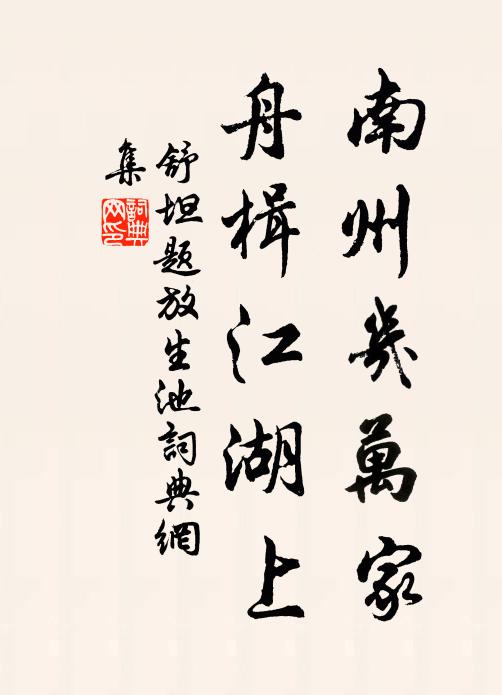 南州幾萬家
舟楫江湖上
舒坦題放生池詞典網
集
詞典
网印